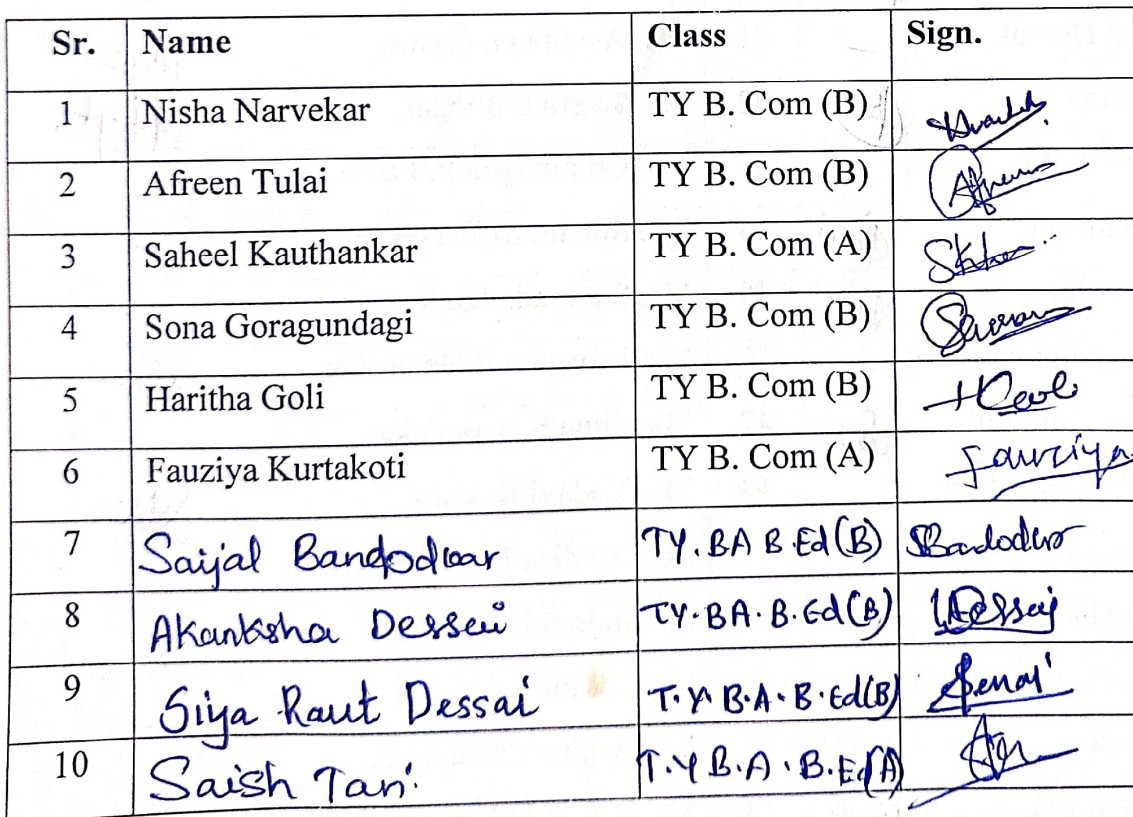 Sr. Name Class Sign.
1 Nisha Narvekar TY B. Com (B)
2 Afreen Tulai TY B. Com (B) Afreen
3 Saheel Kauthankar TY B. Com (A)
4 Sona Goragundagi TY B. Com (B)
5 Haritha Goli TY B. Com (B)
6 Fauziya Kurtakoti TY B. Com (A) Fauziya
7 Saijal Bandodkar TY. BA B.Ed (B)
8 Akanksha Dessai TY. BA. B.Ed (B) Dessai
9 Siya Raut Dessai T.Y. B.A. B.Ed (B)
10 Saish Tari T.Y B.A. B.Ed (A)